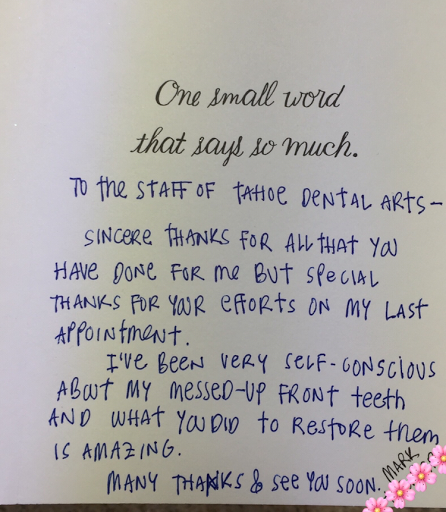 One small word
that says so much.
TO the STAFF OF TAHOE DENTAL ARTS-
SINCERE THANKS FOR ALL THAT YOU
HAVE DONE FOR me BUT SPECIAL
THANKS FOR YOUR eFFORTS ON MY LAST
APPOINTMENT.
I'VE BEEN VERY SELF-CONSCIOUS
ABOUT MY MESSED-UP FRONT teeth
AND WHAT YOU DID to RESTORE them
IS AMAZING.
MANY THANKS & See YOU SOON. MARK